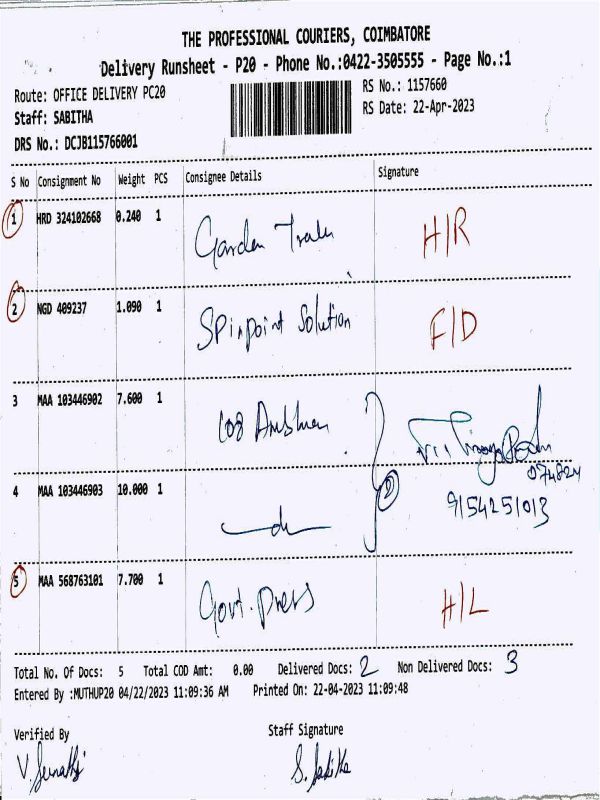 THE PROFESSIONAL COURIERS, COIMBATORE
Delivery Runsheet - P20 - Phone No.:0422-3505555 - Page No.:1
Route: OFFICE DELIVERY PC20
RS No.: 1157660
Staff: SABITHA
RS Date: 22-Apr-2023
DRS No.: DCJB115766001
S No Consignment No Weight PCS Consignee Details Signature
1 HRD 324102668 0.240 1 Garden H/R
2 NGD 409237 1.090 1 Spinpoint Solution F/D
3 MAA 103446902 7.600 1 108
074824
4 MAA 103446903 10.000 1 do 2 9154251013
5 MAA 568763101 7.700 1 Govt. Press H/L
Total No. Of Docs: 5 Total COD Amt: 0.00 Delivered Docs: 2 Non Delivered Docs: 3
Entered By :MUTHUP20 04/22/2023 11:09:36 AM Printed On: 22-04-2023 11:09:48
Verified By Staff Signature